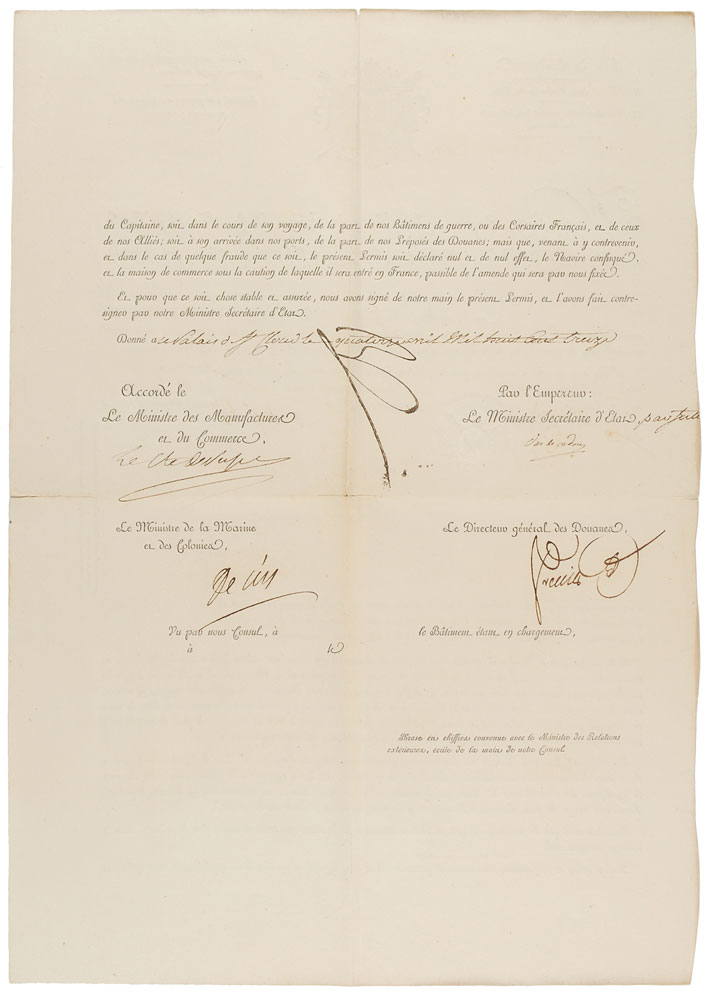 du Capitaine, soit dans le cours de son voyage, de la part de nos Bâtimens de guerre, ou des Corsaires Français, et de ceux
de nos Alliés; soit à son arrivée dans nos ports, de la part de nos Préposés des Douanes; mais que, venant à y contrevenir,
et dans le cas de quelque fraude que ce soit, le présent Permis soit déclaré nul et de nul effet, le Navire confisqué,
et la maison de commerce sous la caution de laquelle il sera entré en France, passible de l'amende qui sera par nous fixée.
Et pour que ce soit chose stable et assurée, nous avons signé de notre main le présent Permis, et l'avons fait contre-
signer par notre Ministre Secrétaire d'Etat.
Donné au Palais de St Cloud le quatorze avril Mil huit Cent treize
Accordé le
Le Ministre des Manufactures
et du Commerce,
Par l'Empereur:
Le Ministre Secrétaire d'Etat,
Le Ministre de la Marine
et des Colonies,
Le Directeur général des Douanes,
Vu par nous Consul, à
à le
le Bâtiment étant en chargement,
Phrase en chiffres convenue avec le Ministre des Relations
extérieures, écrite de la main de notre Consul